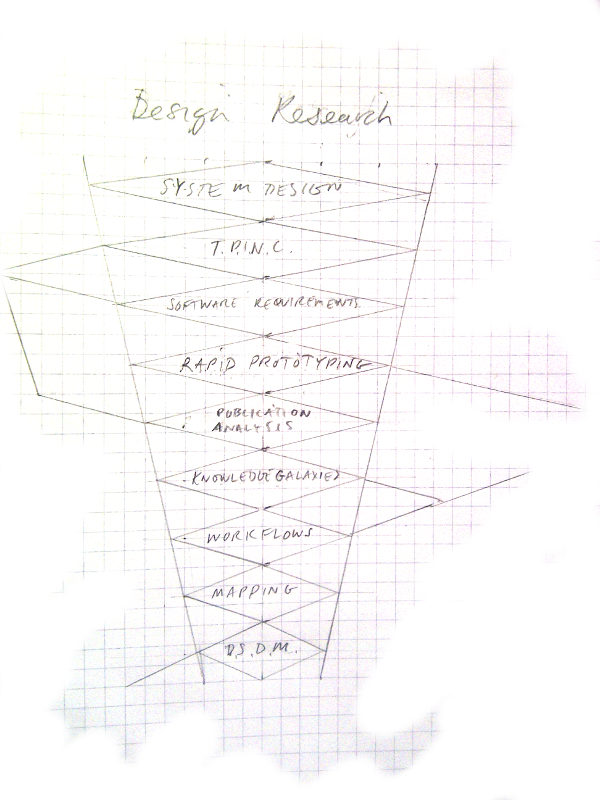 Design Research
SYSTEM DESIGN
T.P.I.N.C.
SOFTWARE REQUIREMENTS
RAPID PROTOTYPING
PUBLICATION
ANALYSIS
KNOWLEDGE GALAXIES
WORKFLOWS
MAPPING
D.S.D.M.